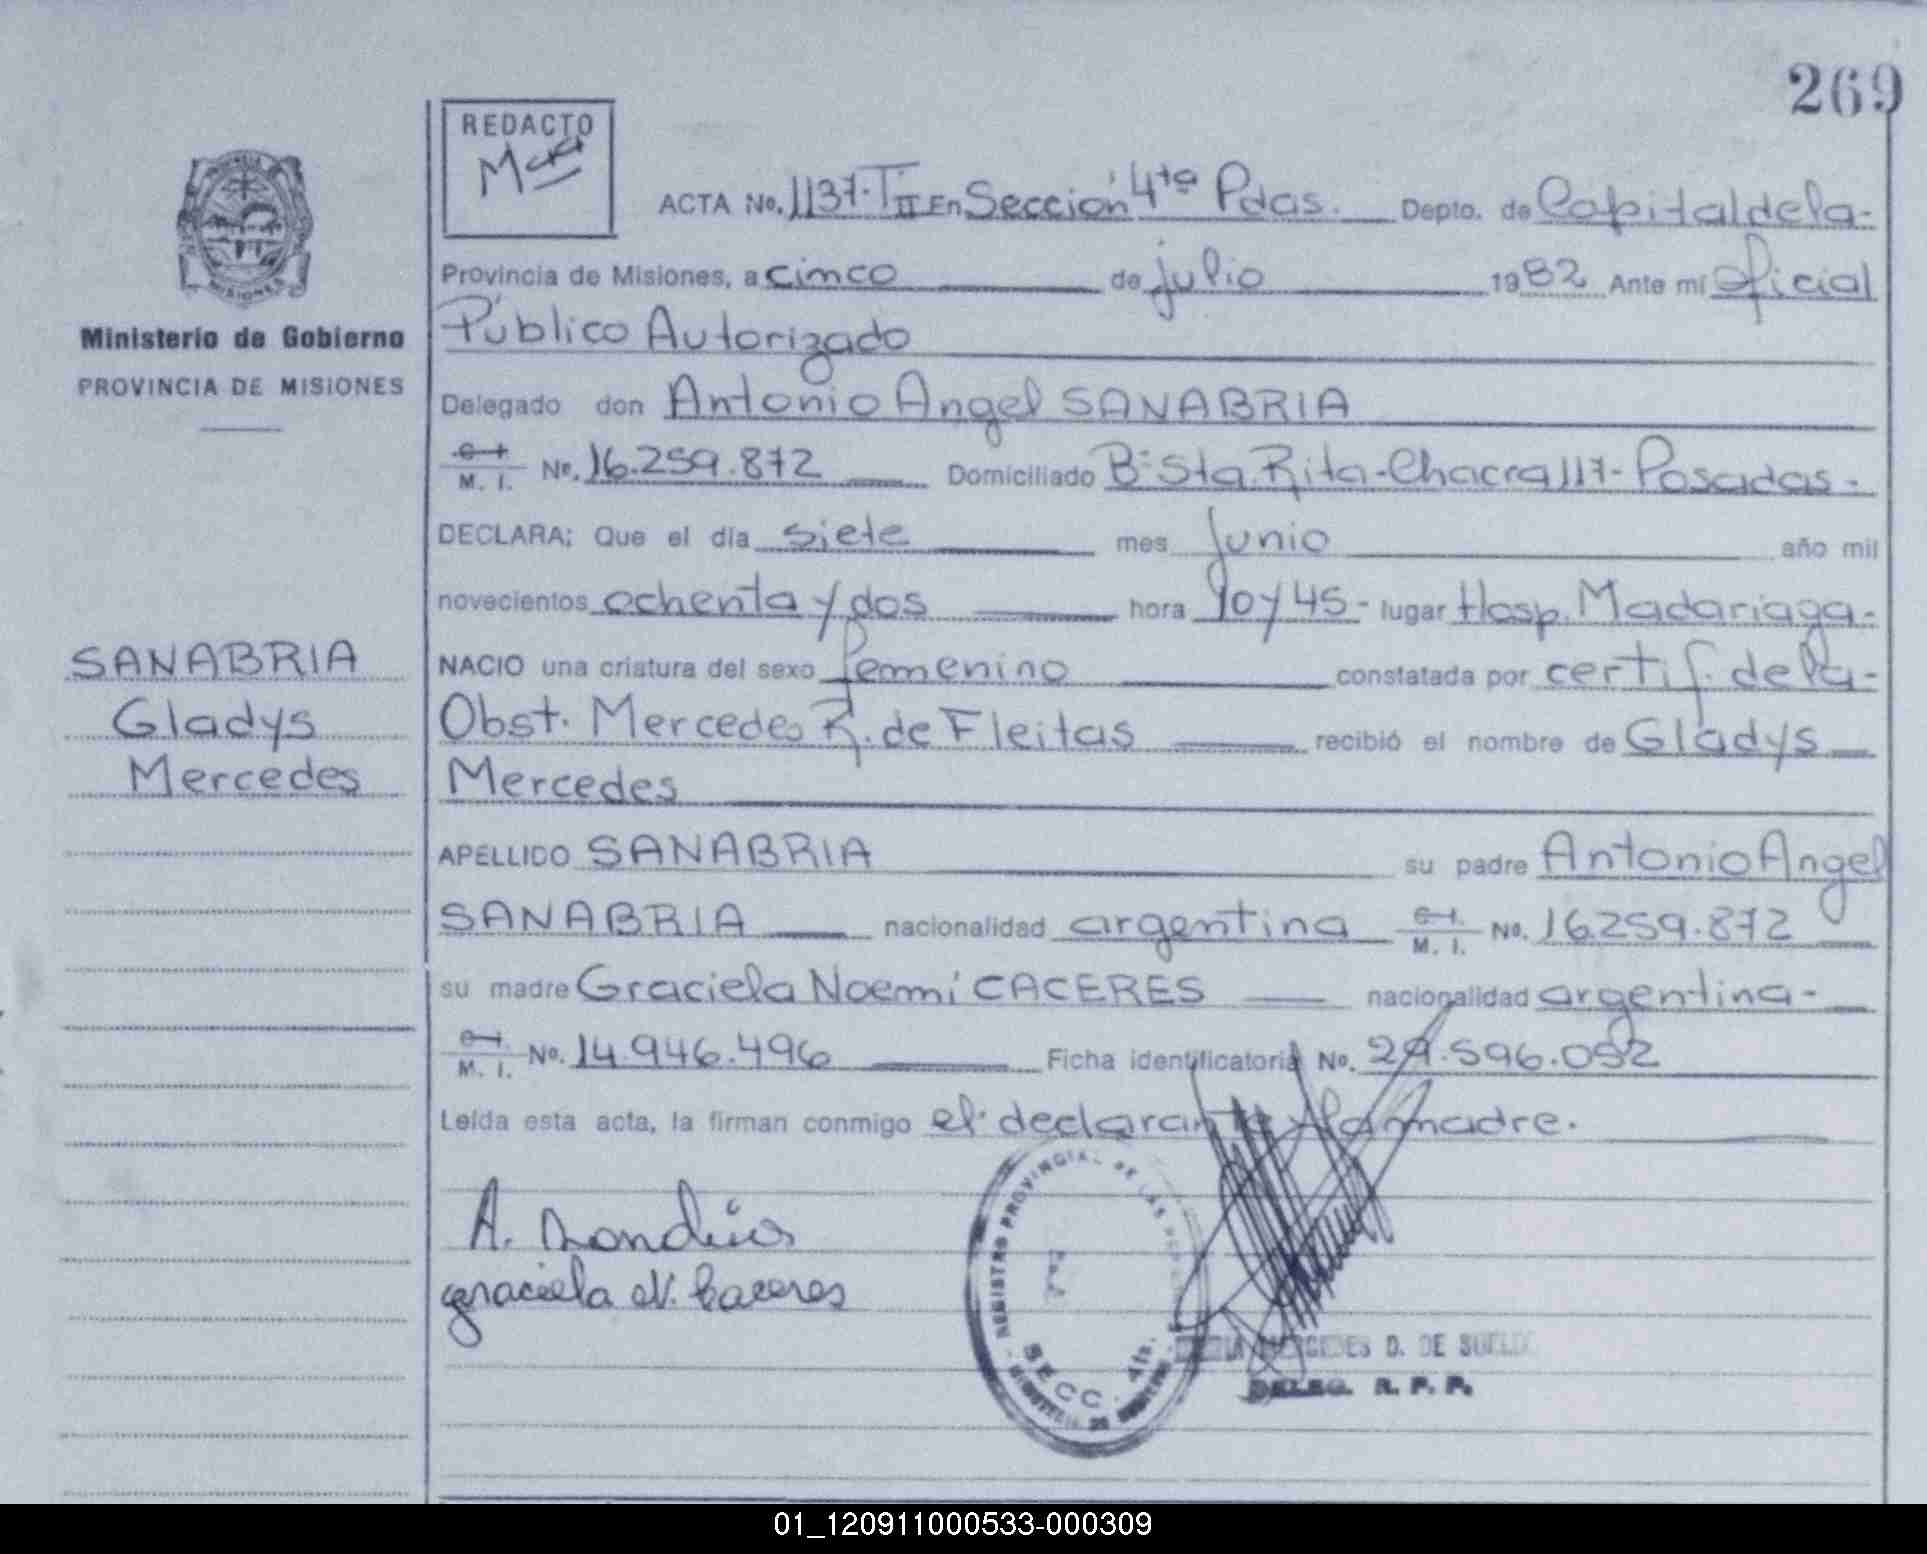 269
REDACTO
ACTA No. 1137·T II En Sección 4ta Pdas. Depto. de Capital de la-
Provincia de Misiones, a cinco de julio 1982 Ante mí Oficial
Público Autorizado
Ministerio de Gobierno
PROVINCIA DE MISIONES
Delegado don Antonio Angel SANABRIA
C.I. M. I. No. 16.259.872 Domiciliado B° Sta. Rita-Chacra 117-Posadas-
DECLARA: Que el día siete mes Junio año mil
novecientos ochenta y dos hora 10 y 45- lugar Hosp. Madariaga-
SANABRIA
Gladys
Mercedes
NACIO una criatura del sexo femenino constatada por certif. de la-
Obst. Mercedes R. de Fleitas recibió el nombre de Gladys
Mercedes
APELLIDO SANABRIA su padre Antonio Angel
SANABRIA nacionalidad argentina C.I. M. I. No. 16.259.872
su madre Graciela Noemí CACERES nacionalidad argentina-
C.I. M. I. No. 14.946.496 Ficha identificatoria No. 29.596.052
Leída esta acta, la firman conmigo el declarante y la madre.
graciela N. Caceres
REGISTRO PROVINCIAL DE LAS
SECC. 4ta.
MERCEDES D. DE
DELEG. R. P. P.
01_120911000533-000309